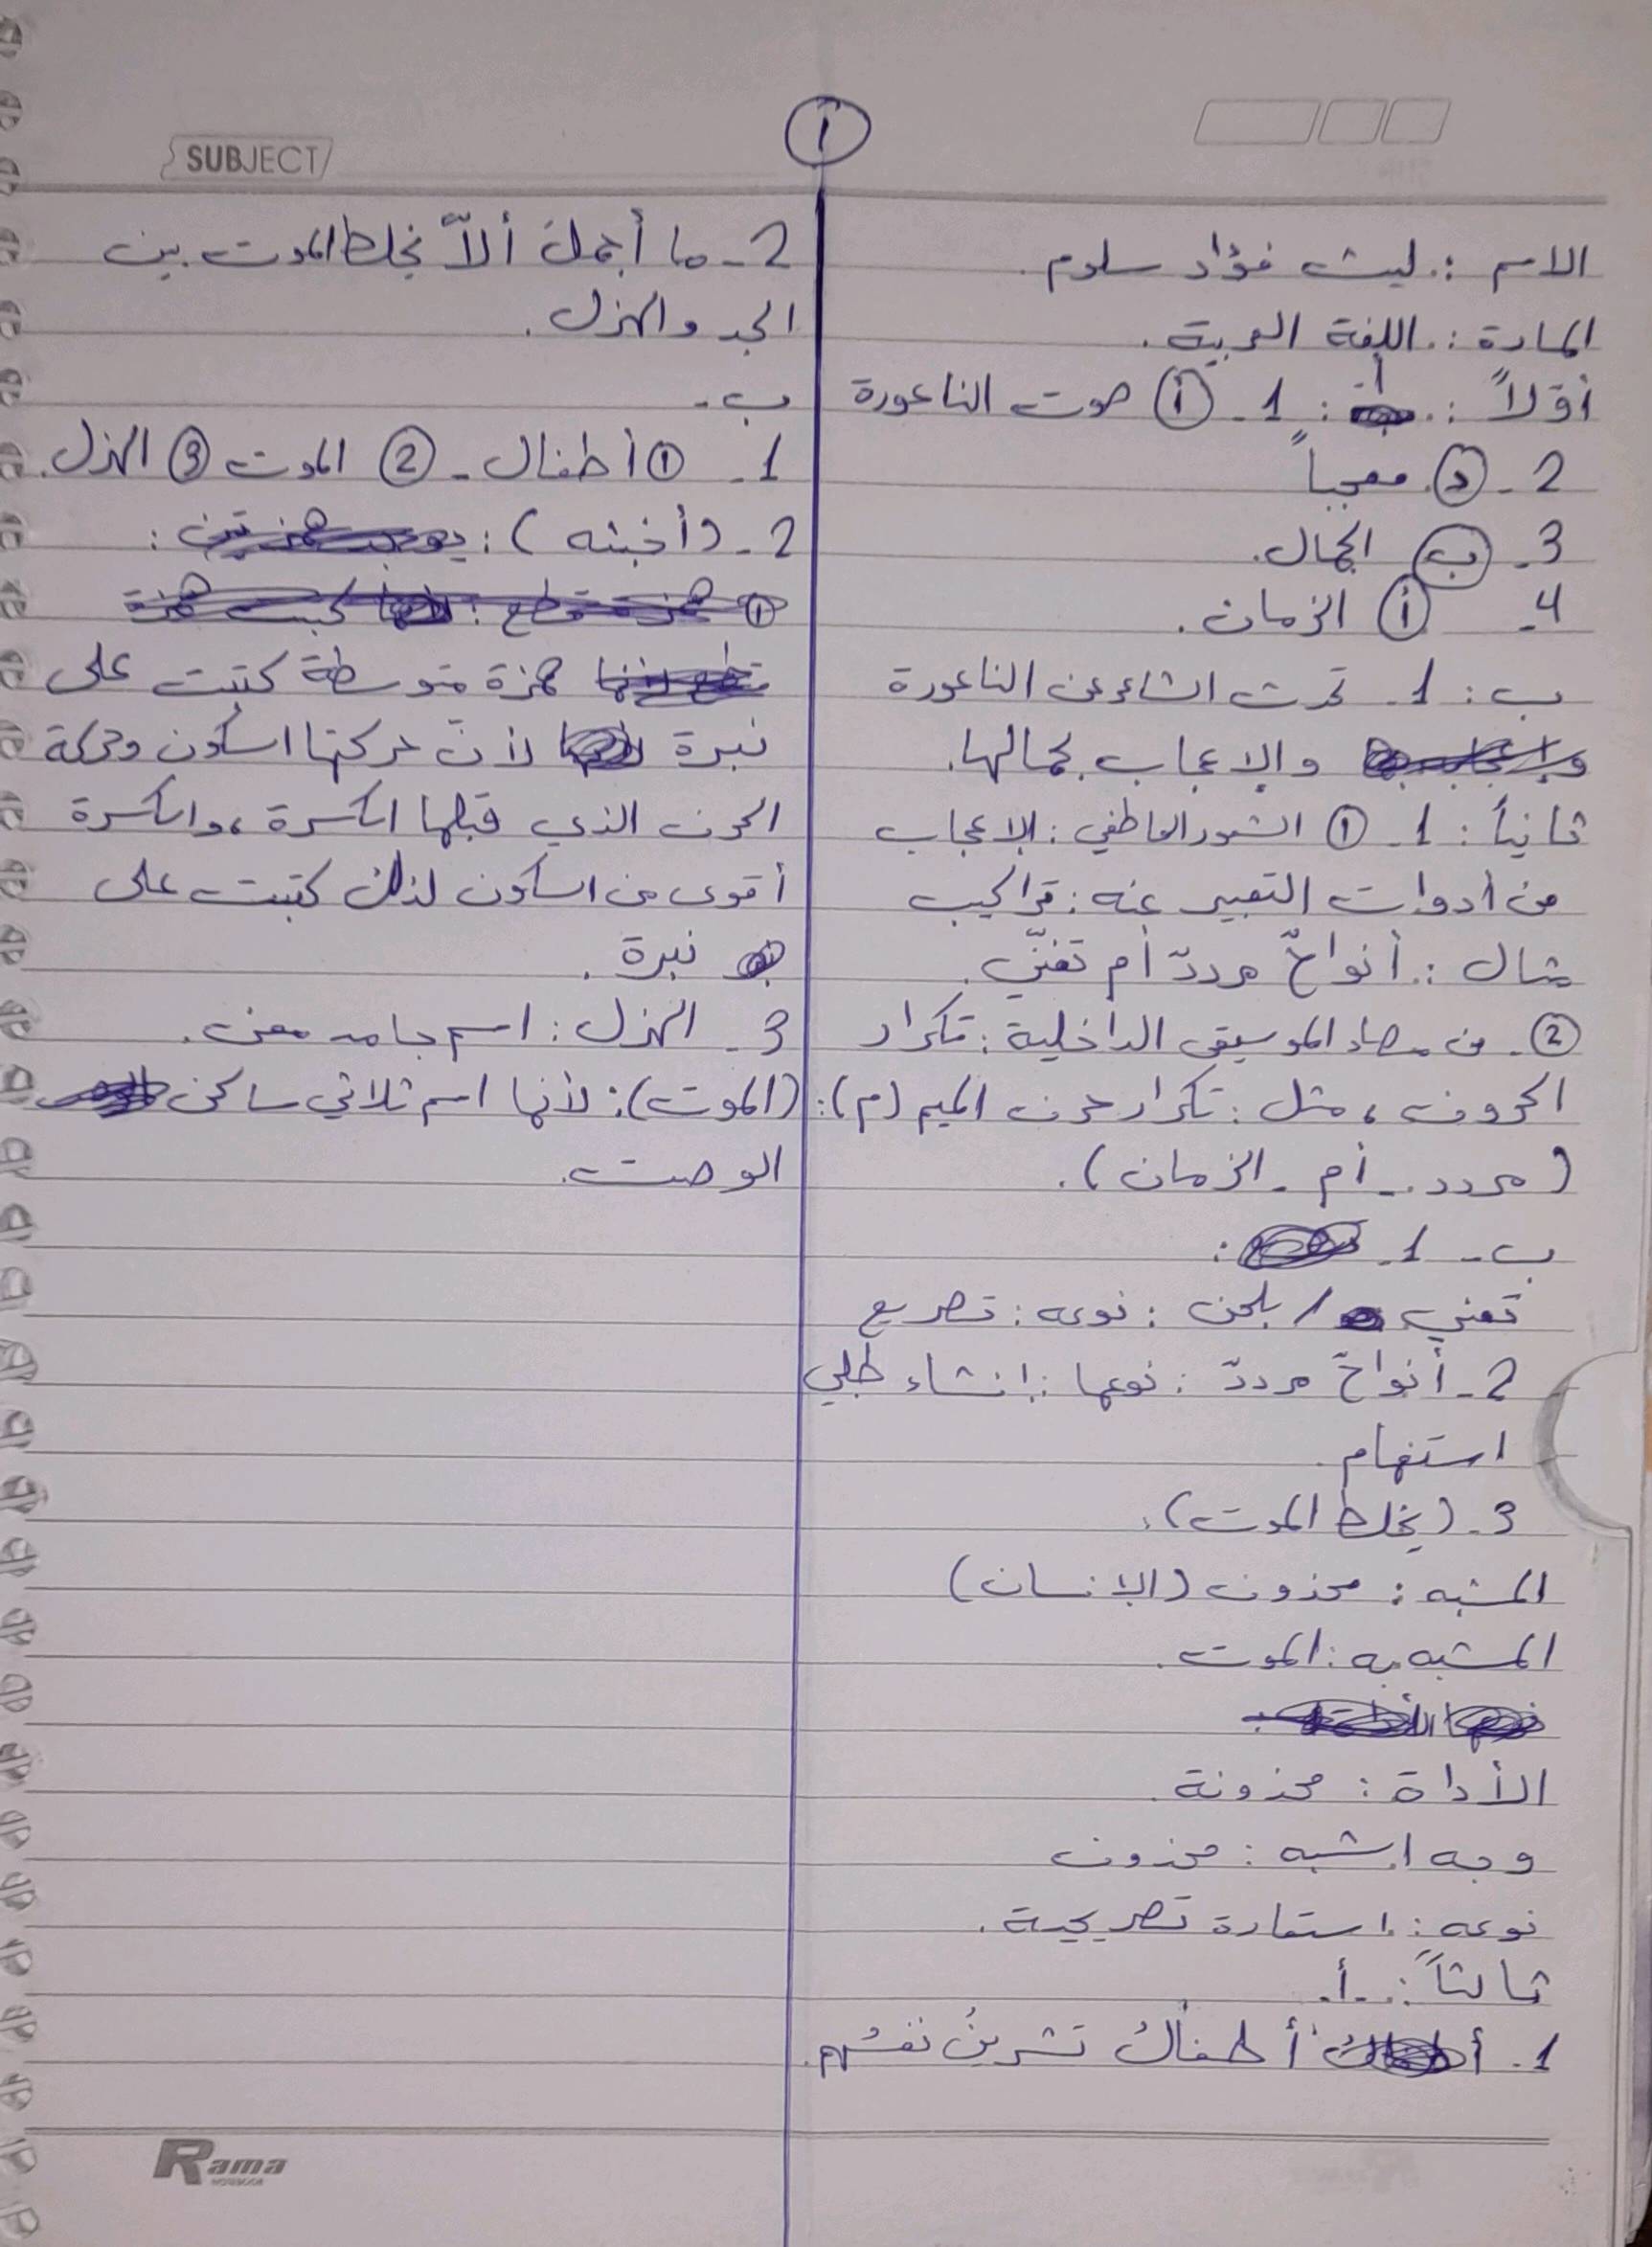 ١
SUBJECT
الاسم : ليث فؤاد سلوم.
المادة : اللغة العربية.
أوّلاً : أ : 1 - أ صوت الناعورة
2 - د معجباً
3 - ب الجمال.
4 - أ الزمان.
ب : 1 - تحدث الشاعر عن الناعورة
والإعجاب بجمالها.
ثانياً : 1 - ① الشعور العاطفي : الإعجاب
من أدوات التعبير عنه : تراكيب
مثال : أنواحٌ مرددّ أم تغنّي.
② - من مصاد الموسيقى الداخلية : تكرار
الحروف ، مثل : تكرار حرف الميم (م) :
(مردد - أم - الزمان).
ب - 1 - :
تغني / بلحن : نوعه : تصريع
2 - أنواحٌ مرددّ : نوعها : إنشاء طلبي
استفهام.
3 - (يخلط الموت).
المشبه : محذوف (الإنسان)
المشبه به : الموت.
الأداة : محذوفة.
وجه الشبه : محذوف
نوعه : استعارة تصريحية.
ثالثاً : أ.
1 - أطفالُ تشرينُ نفسُهم.
2 - ما أجملَ ألاّ يخلط الموت بين
الجد والهزل.
ب -
1 - ① أطفال - ② الموت ③ الهزل.
2 - (أخبئه) :
همزة متوسطة كتبت على
نبرة لأن حركتها السكون وحركة
الحرف الذي قبلها الكسرة ، والكسرة
أقوى من السكون لذلك كتبت على
نبرة.
3 - الهزل : اسم جامد معنى.
(الموت) : لأنها اسم ثلاثي ساكن
الوصت.
Rama
NOTEBOOK